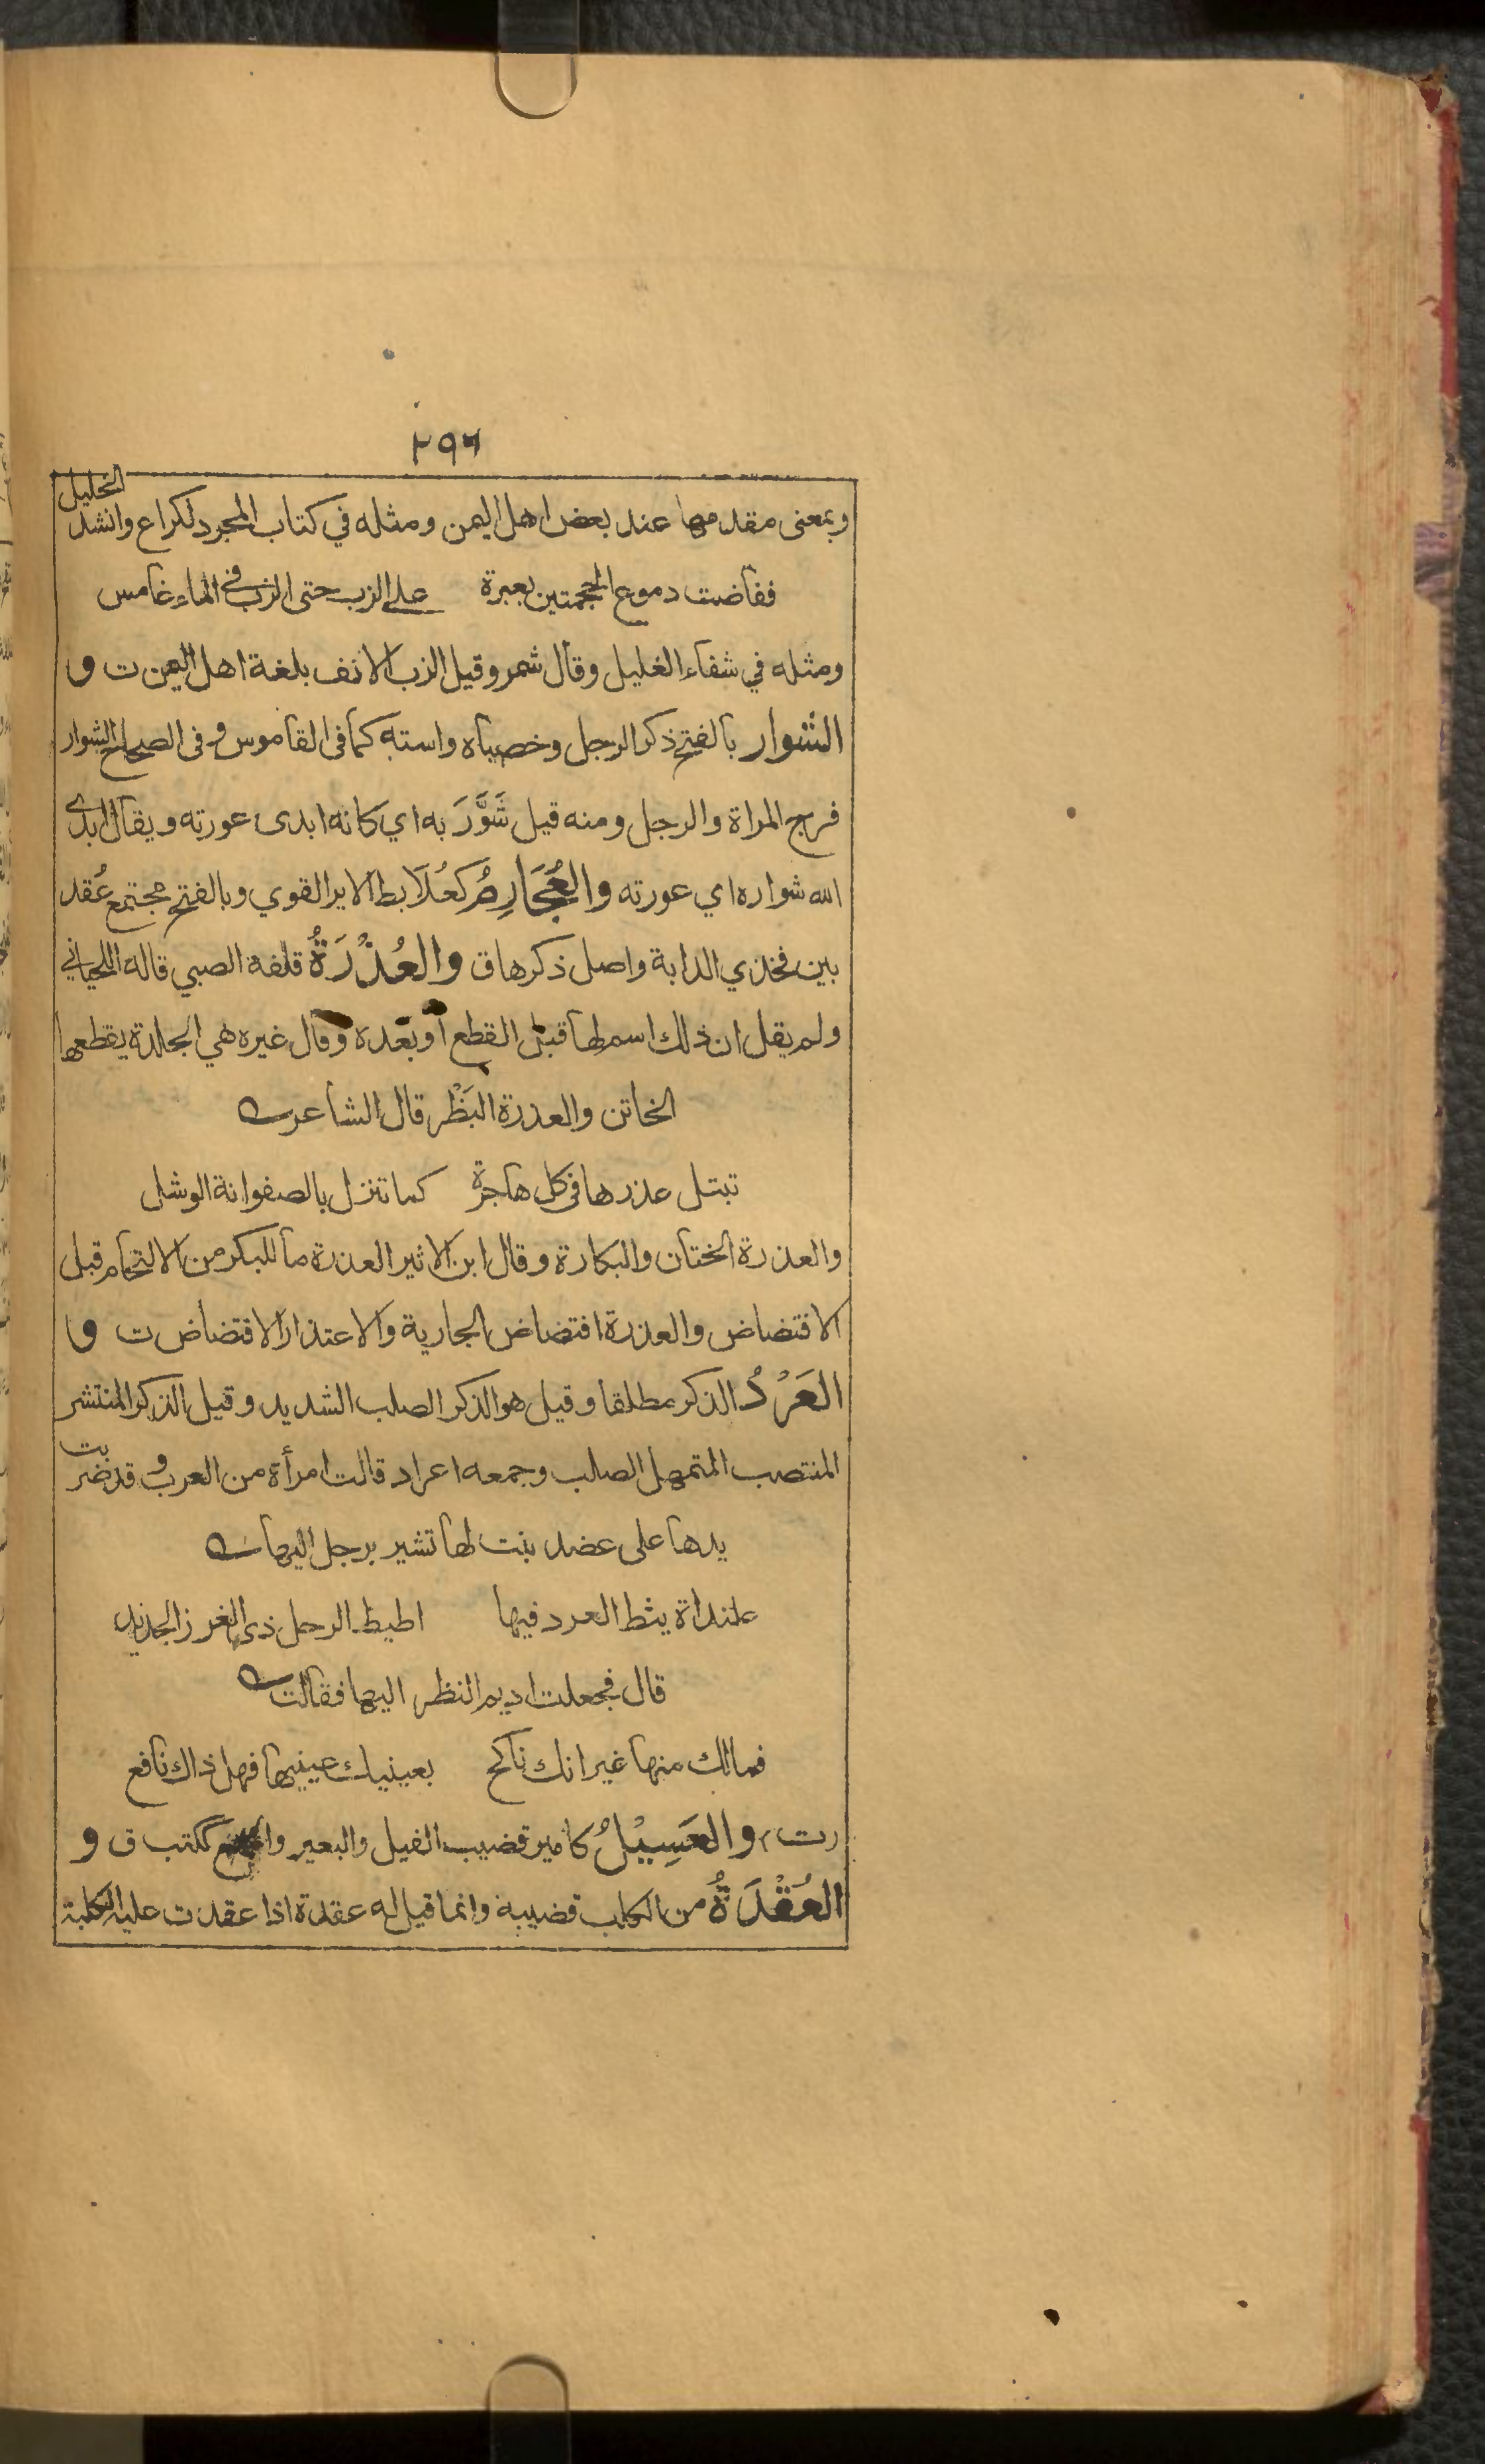 ٢٩٦
وبمعنى مقدمها عند بعض اهل اليمن ومثله في كتاب المجرد لكراع وانشد الخليل
ففاضت دموع الجحمتين بعبرة على الزب حتى الزب في الماء غامس
ومثله في شفاء الغليل وقال شمر وقيل الزب الانف بلغة اهل اليمن ت و
الشوار بالفتح ذكر الرجل وخصياه واسته كما في القاموس و في الصحاح الشوار
فرج المراة والرجل ومنه قيل شَوَّرَ به اي كانه ابدى عورته ويقال ابدى
الله شواره اي عورته والعُجَارِمُ كعُلَابط الاير القوي وبالفتح مجتمع عُقد
بين فخذي الدابة واصل ذكرها ق والعُذْرَةُ قلفة الصبي قاله اللحياني
ولم يقل ان ذلك اسم لها قبل القطع او بعده وقال غيره هي الجلدة يقطعها
الخاتن والعذرة البَظْر قال الشاعر
تبتل عذرها في كل هاجرة كما تنزل بالصفوانة الوشل
والعذرة الختان والبكارة وقال ابن الاثير العذرة ما للبكر من الالتحام قبل
الافتضاض والعذرة افتضاض الجارية والاعتذار الافتضاض ت و
العَرْدُ الذكر مطلقا وقيل هو الذكر الصلب الشديد وقيل الذكر المنتشر
المنتصب المتمهل الصلب وجمعه اعراد قالت امرأة من العرب و قد ضربت
يدها على عضد بنت لها تشير برجل اليها
علنداة يئط العرد فيها اطيط الرحل ذي الغرز الجديد
قال فجعلت اديم النظر اليها فقالت
فمالك منها غير انك ناكح بعينيك عينيها فهل ذاك نافع
رت، والعَسِيْلُ كامير قضيب الفيل والبعير والجمع ككتب ق و
العُقْدَةُ من الكلب قضيبه وانما قيل له عقدة اذا عقدت عليه الكلبة